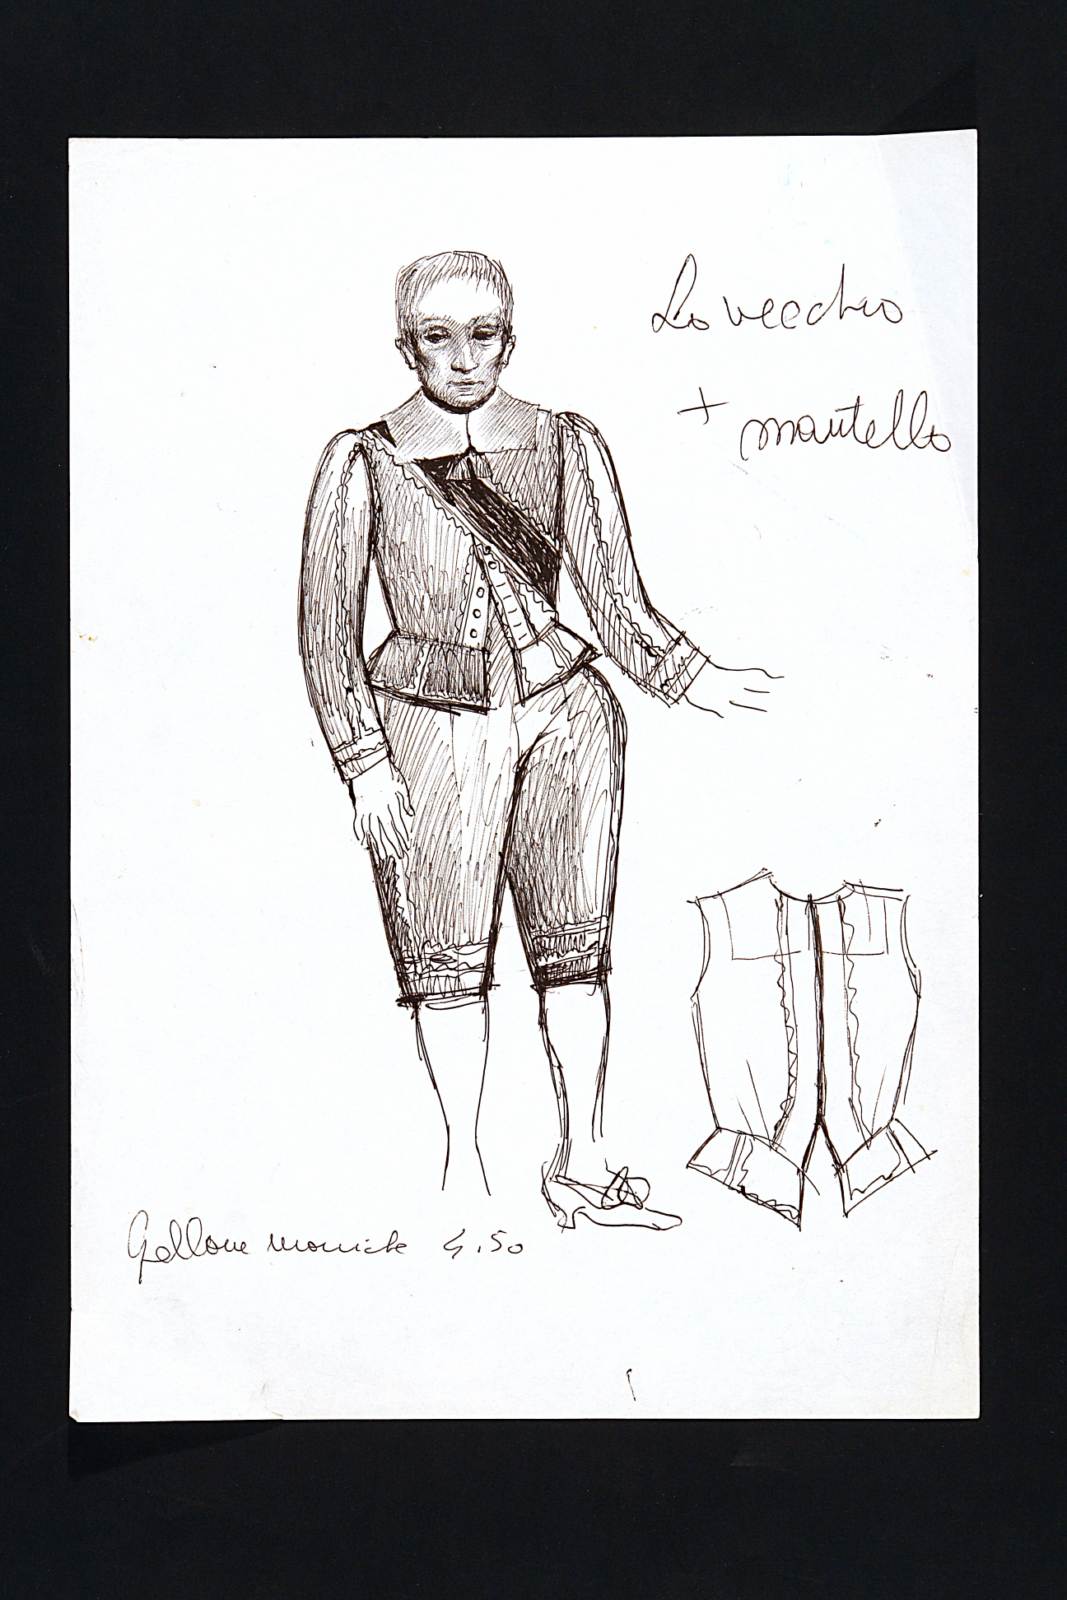 Lo Vecchio
+ mantello
Gallone maniche 4.50